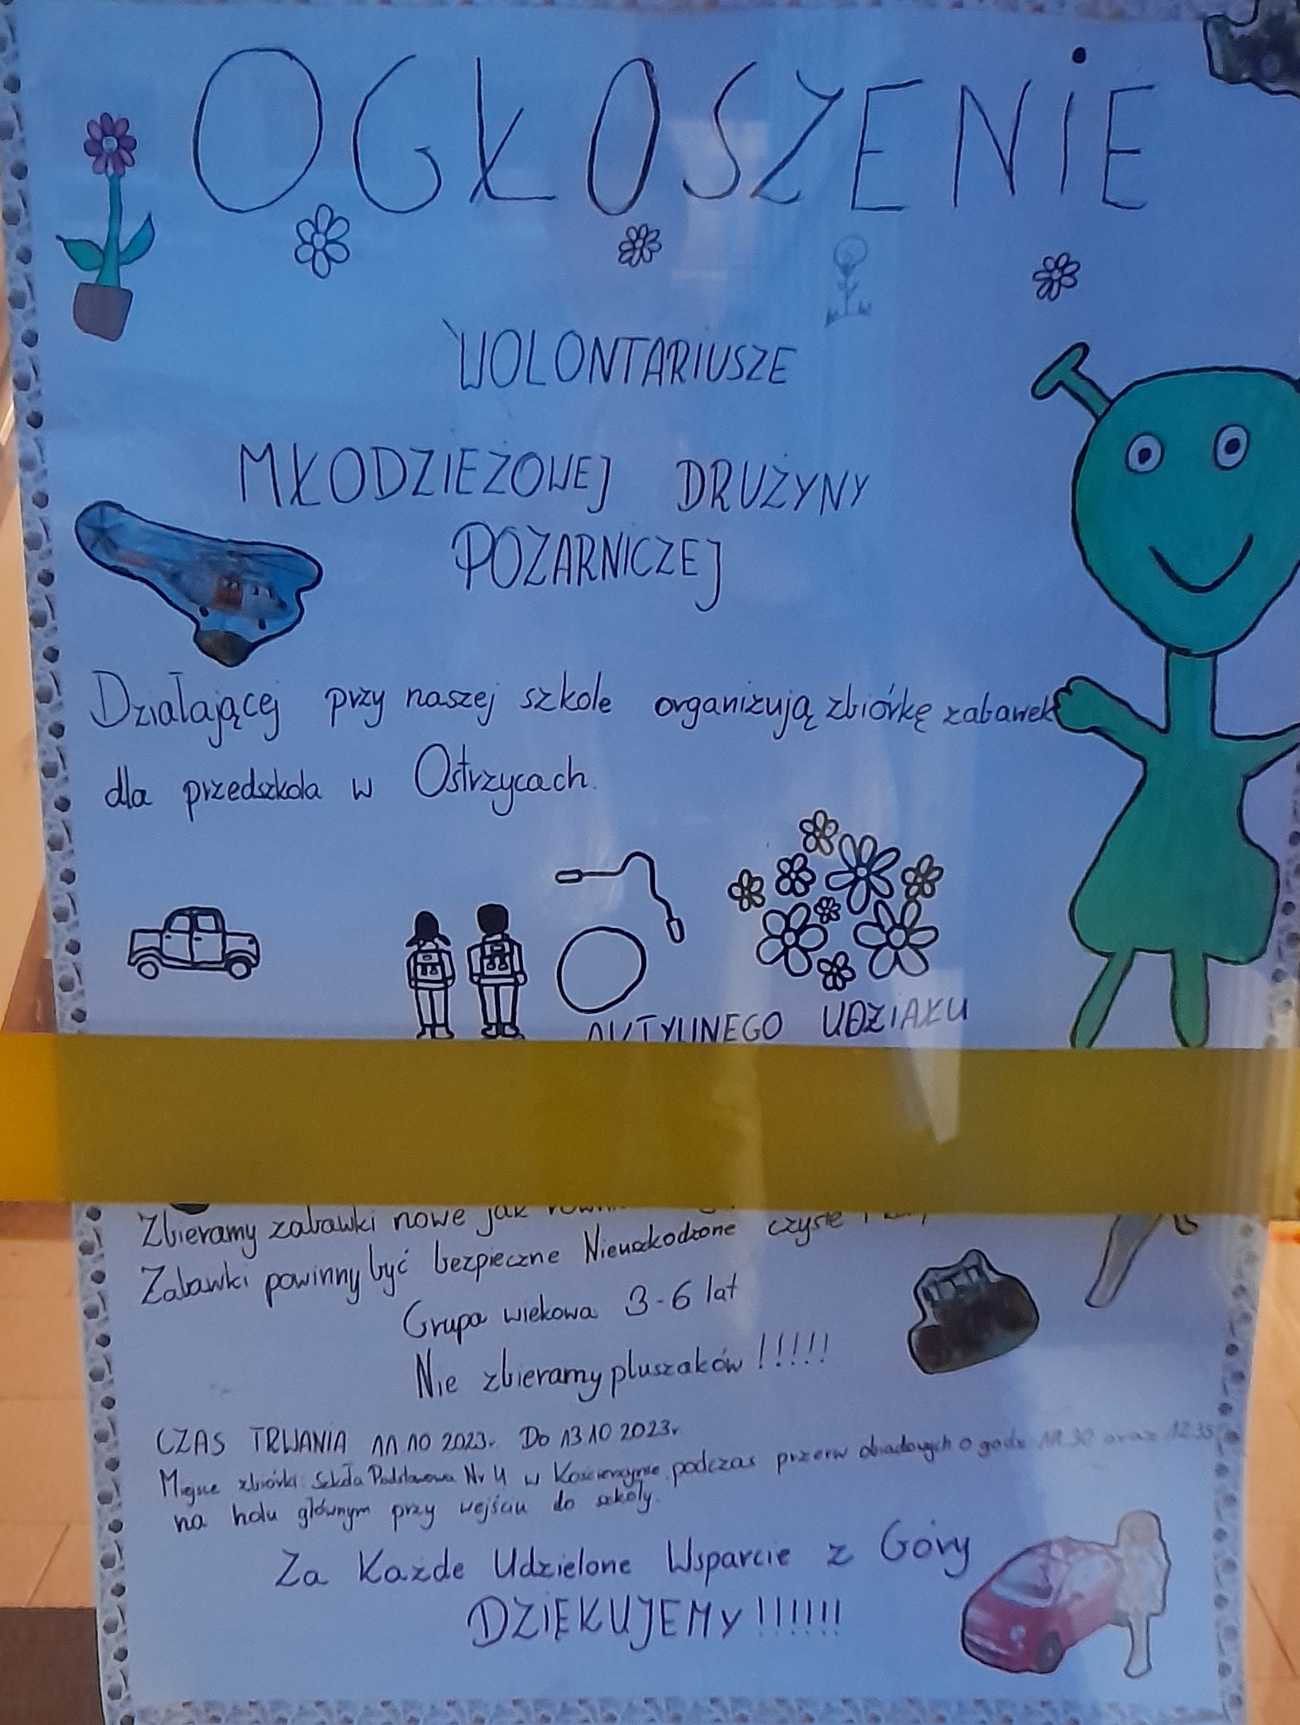 OGŁOSZENIE
WOLONTARIUSZE
MŁODZIEŻOWEJ DRUŻYNY
POŻARNICZEJ
Działającej przy naszej szkole organizują zbiórkę zabawek
dla przedszkola w Ostrzycach.
AKTYWNEGO UDZIAŁU
Zbieramy zabawki nowe jak
Zabawki powinny być bezpieczne Nieuszkodzone czyste i
Grupa wiekowa 3-6 lat
Nie zbieramy pluszaków!!!!!
CZAS TRWANIA 11.10 2023r. Do 13 10 2023r.
Miejsce zbiórki Szkoła Podstawowa Nr 4 w Kościerzynie podczas przerw obiadowych o godz 11.30 oraz 12:35
na holu głównym przy wejściu do szkoły.
Za Każde Udzielone Wsparcie z Góry
DZIĘKUJEMY!!!!!!